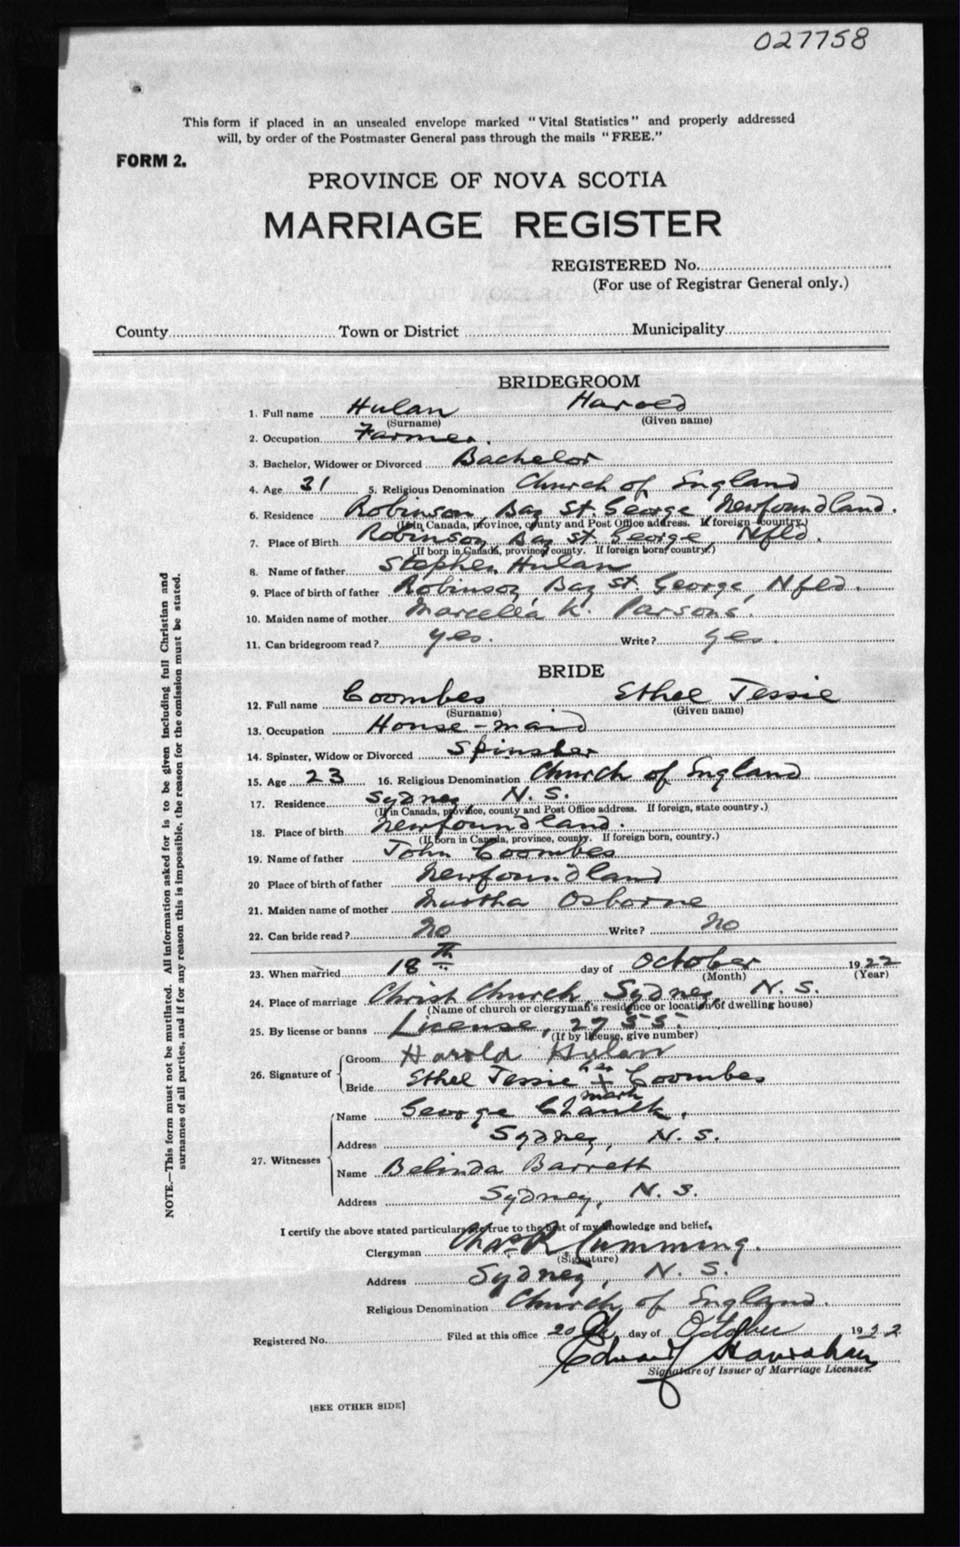 027758
This form if placed in an unsealed envelope marked "Vital Statistics" and properly addressed
will, by order of the Postmaster General pass through the mails "FREE."
FORM 2.
PROVINCE OF NOVA SCOTIA
MARRIAGE REGISTER
REGISTERED No.
(For use of Registrar General only.)
County Town or District Municipality
BRIDEGROOM
1. Full name Hulan Harold
(Surname) (Given name)
2. Occupation Farmer.
3. Bachelor, Widower or Divorced Bachelor
4. Age 31 5. Religious Denomination Church of England
6. Residence Robinson, Bay St. George Newfoundland.
(If in Canada, province, county and Post Office address. If foreign country.)
7. Place of Birth Robinson, Bay St. George, Nfld.
(If born in Canada, province, county. If foreign born, country.)
8. Name of father Stephen Hulan
9. Place of birth of father Robinson, Bay St. George, Nfld.
10. Maiden name of mother Marcella K. Parsons.
11. Can bridegroom read? yes. Write? yes.
BRIDE
12. Full name Coombes Ethel Jessie
(Surname) (Given name)
13. Occupation House-maid
14. Spinster, Widow or Divorced Spinster
15. Age 23 16. Religious Denomination Church of England
17. Residence Sydney N. S.
(If in Canada, province, county and Post Office address. If foreign, state country.)
18. Place of birth Newfoundland.
(If born in Canada, province, county. If foreign born, country.)
19. Name of father John Coombes
20 Place of birth of father Newfoundland
21. Maiden name of mother Martha Osborne
22. Can bride read? No Write? No
23. When married 18th day of October 1922
(Month) (Year)
24. Place of marriage Christ Church, Sydney, N. S.
(Name of church or clergyman's residence or location of dwelling house)
25. By license or banns License, 2955
(If by license, give number)
26. Signature of Groom Harold Hulan
her
Bride Ethel Jessie X Coombes
mark
27. Witnesses Name George Chaulk.
Address Sydney, N. S.
Name Belinda Barrett
Address Sydney, N. S.
I certify the above stated particulars are true to the best of my knowledge and belief.
Clergyman Chas R Cumming.
(Signature)
Address Sydney, N. S.
Religious Denomination Church of England.
Registered No. Filed at this office 20 day of October 1922
Edward
Signature of Issuer of Marriage Licenses.
[SEE OTHER SIDE]
NOTE.—This form must not be mutilated. All information asked for is to be given including full Christian and
surnames of all parties, and if for any reason this is impossible, the reason for the omission must be stated.